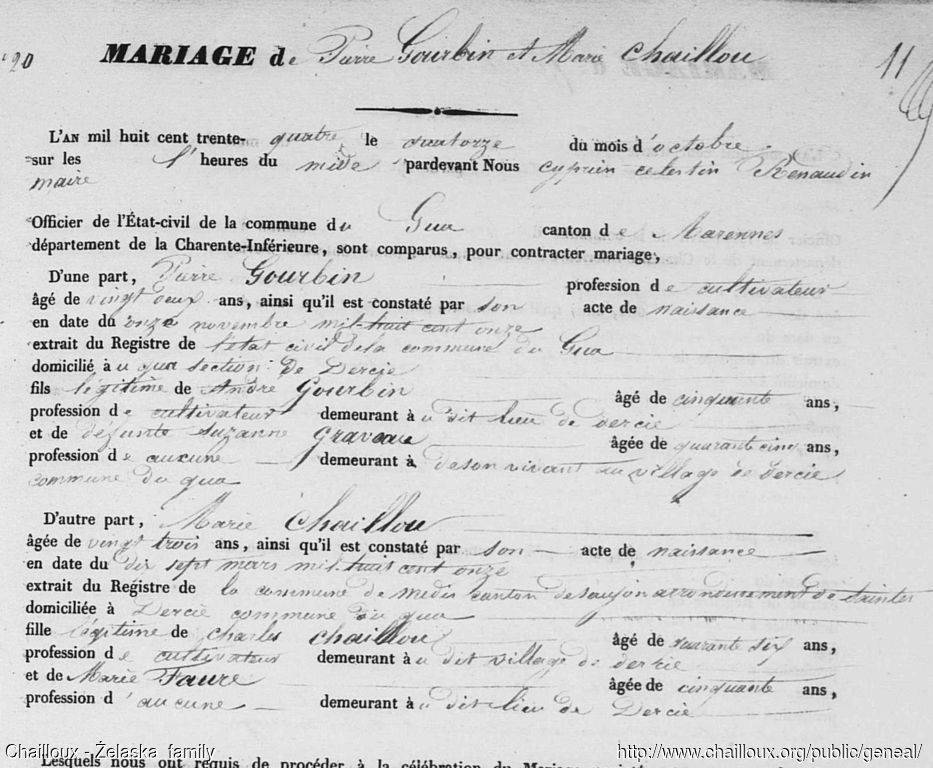 20 MARIAGE de Pierre Gourbin et Marie Chaillou 11
L'AN mil huit cent trente-quatre le quatorze du mois d'octobre
sur les heures du midi pardevant Nous cyprien celestin Renaudin
maire
Officier de l'État-civil de la commune du Gua canton de Marennes
département de la Charente-Inférieure, sont comparus, pour contracter mariage,
D'une part, Pierre Gourbin profession de cultivateur
âgé de vingt deux ans, ainsi qu'il est constaté par son acte de naissance
en date du onze novembre mil-huit cent onze
extrait du Registre de l'etat civil de la commune du Gua
domicilié à u gua section de Dercie
fils légitime de André Gourbin âgé de cinquante ans,
profession de cultivateur demeurant à u dit lieu de dercie
et de defunte suzanne Graveau âgée de quarante cinq ans,
profession de aucune demeurant à de son vivant au village de Dercie
commune du gua
D'autre part, Marie Chaillou
âgée de vingt trois ans, ainsi qu'il est constaté par son acte de naissance
en date du dix sept mars mil-huit cent onze
extrait du Registre de la commune de medis canton de saujon arrondissement de saintes
domiciliée à Dercie commune du gua
fille légitime de charles chaillou âgé de quarante six ans,
profession de cultivateur demeurant à u dit village de dercie
et de Marie Faure âgée de cinquante ans,
profession d'aucune demeurant à u dit lieu de Dercie
Lesquels nous ont requis de procéder à la célébration du Mariage
Chailloux - Żelaska family http://www.chailloux.org/public/geneal/